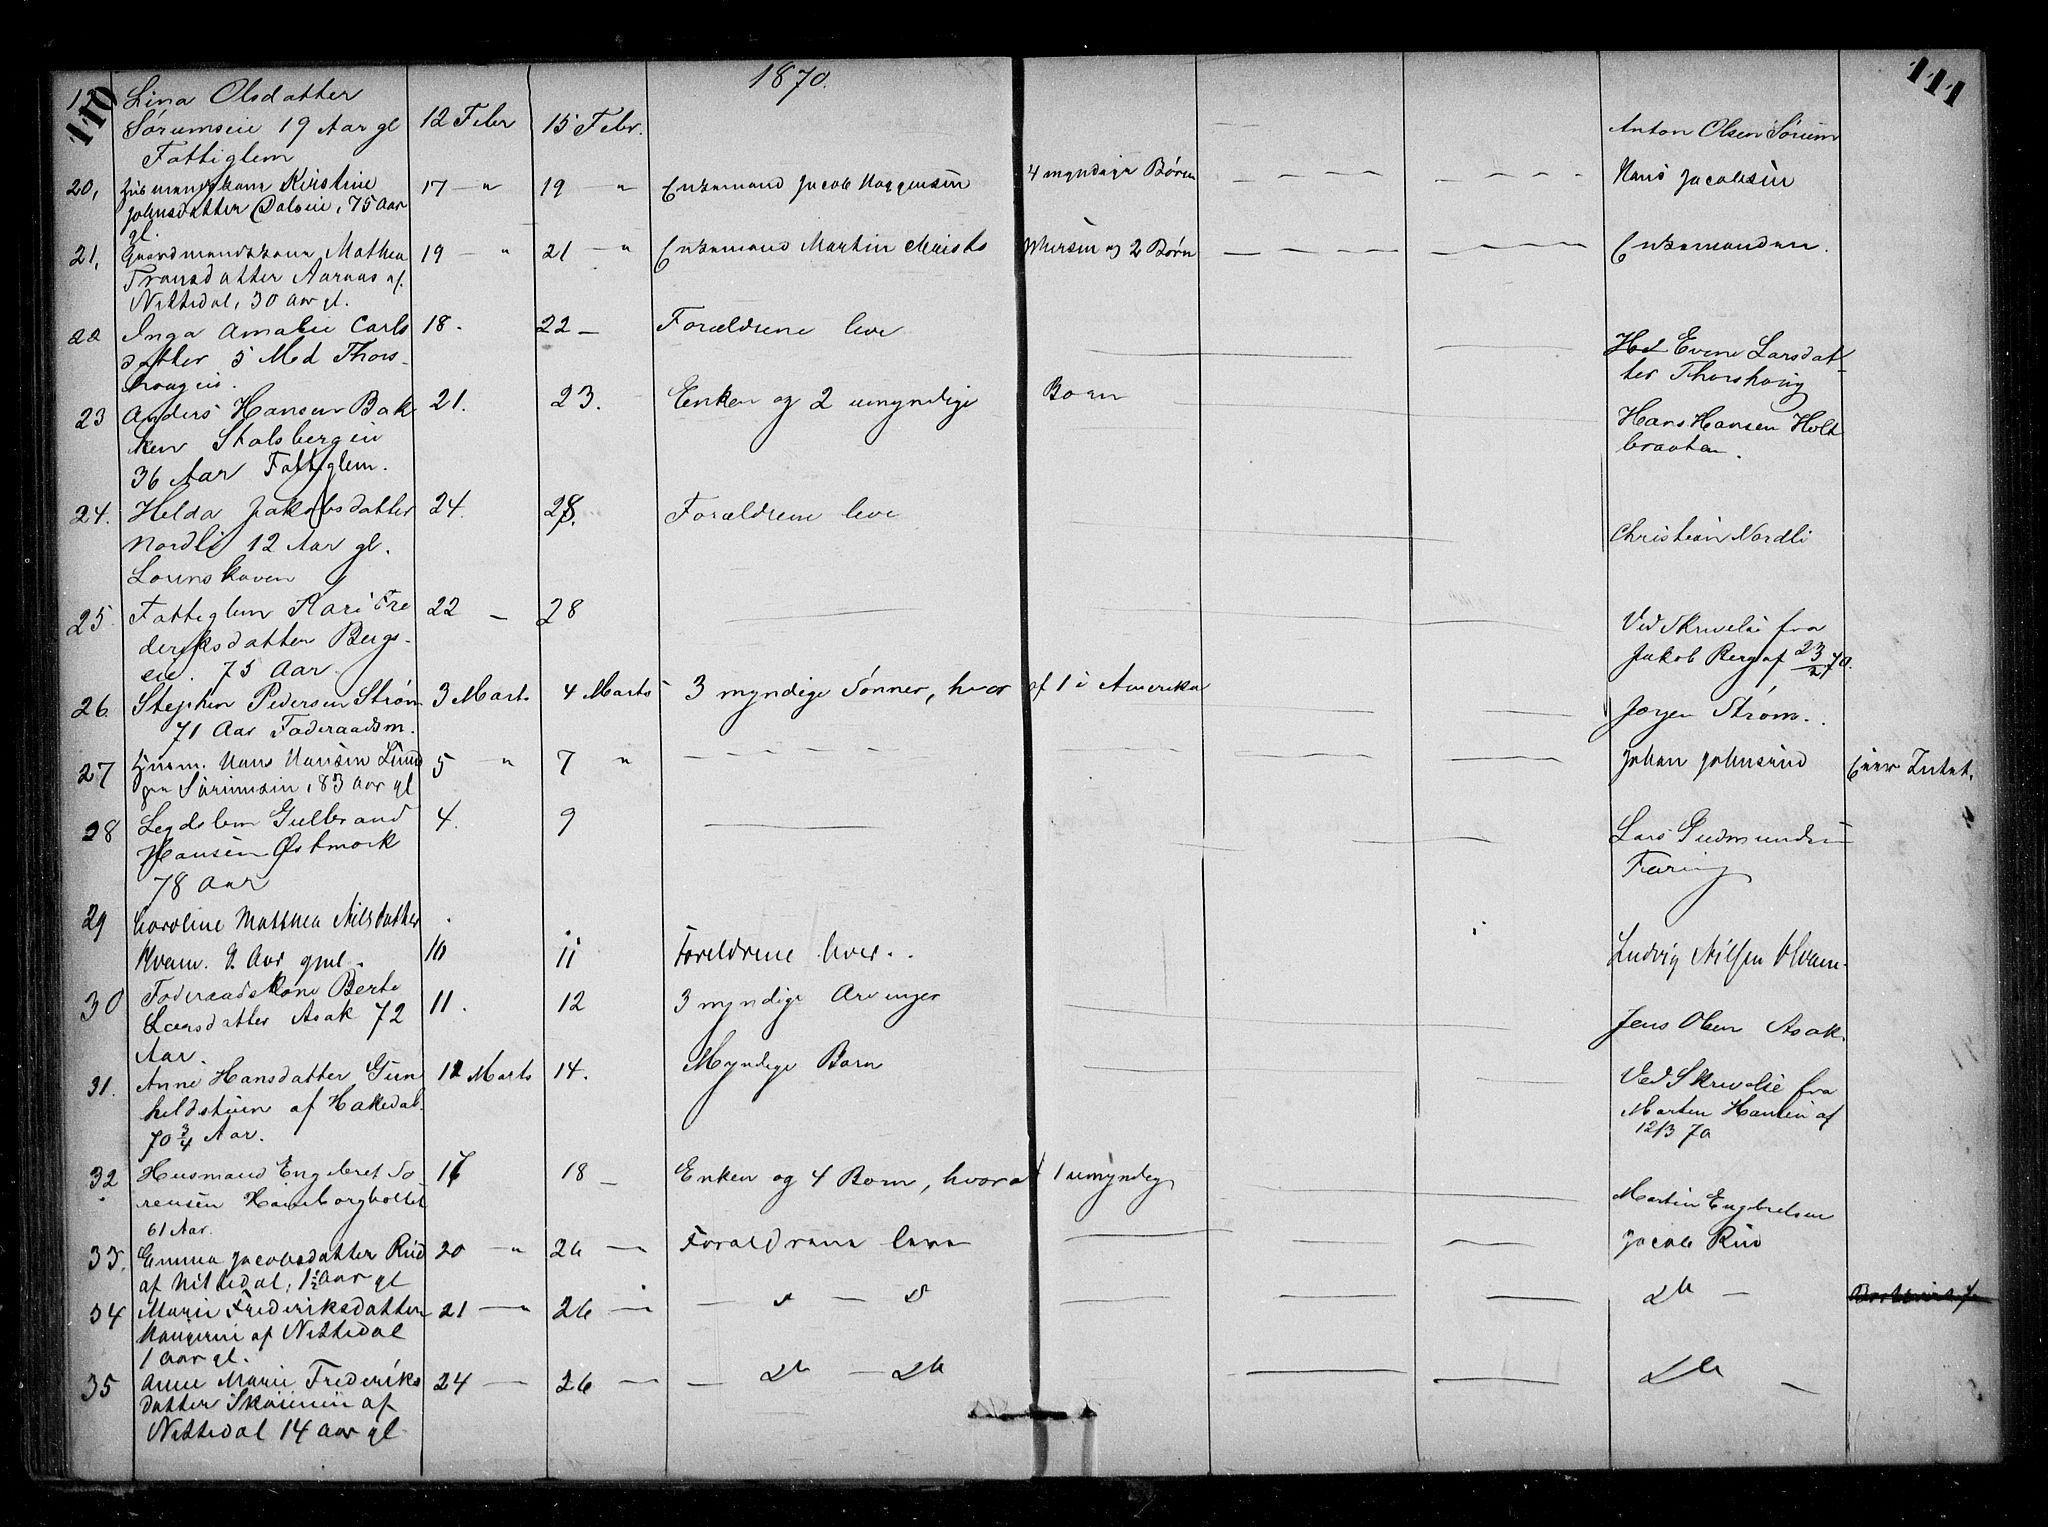 110
1870.
111
19 Lina Olsdatter
Sørumseie 19 Aar gl 12 Febr 15 Febr. Anton Olsen Sørum
Fattiglem
20, Kirstine 17 — " 19 — " Enkemand Jacob 4 myndige Børn Hans Jacobsen
Johnsdatter Dalseie, 75 Aar
gl.
21, Gaardmandskone Mathea 19 — " 21 — " Enkemand Martin og 2 Børn Enkemanden.
Fransdatter Aarnaas af
Nittedal, 30 Aar gl.
22 Inga Amalie Carls 18. 22 — Forældrene leve Evene Larsdat-
datter 5 Md Thors- ter Thorshoug
hougeie.
23 Anders Hansen Bak 21. 23. Enken og 2 umyndige Børn Hans Hansen Holt
ken Stalsbergeie braaten.
36 Aar Fattiglem.
24. Helda Jakobsdatter 24. 28. Forældrene leve Christian Nordli
Nordli 12 Aar gl.
Lorenskoven
25. Fattiglem Kari Fre 22 — 28 Ved Skrivelse fra
deriksdatter Bergs- Jakob Berg af 23/2 70.
eie. 75 Aar
26. Stephen Pedersen Strøm 3 Marts 4 Marts 3 myndige Sønner, hvor af 1 i Amerika Jørgen Strøm.
71 Aar Føderaadsm.
27 Husm. Hans Hansen 5 " 7 " Johan Johnsrud Eier Intet.
Sørumseie, 83 Aar gl
28 Legdslem Gulbrand 4. 9 Lars Gudmundsen
Hansen Østmork Faring
78 Aar
29 Caroline Mathea Nilsdatter
Kvam. 9 Aar gml. 10 11 Foreldrene lever. Ludvig Nilsen Kvam.
30 Føderaadskone Berte 11. 12 3 myndige Arvinger Jens Olsen Asak.
Larsdatter Asak 72
Aar.
31. Anne Hansdatter Gun 12 Marts 14. Myndige Børn Ved Skrivelse fra
hildstuen af Hakedal. Marten Hansen af
70 3/4 Aar. 12/3 70
32 Husmand Engebret Sø 17 18 — Enken og 4 Børn, hvoraf 1 umyndig Martin Engebretsen
rensen
61 Aar.
33. Emma Jacobsdatter Rud 20 — " 26 — Forældrene leve Jacob Rud
af Nittedal, 1½ Aar gl
34 Marie Frederiksdatter 21 — " 26 — Do —
af Nittedal
1 Aar gl.
35 Anne Marie Frederiks 24 — 26 — — Do — Do Do —
datter af
Nittedal 14 Aar gl